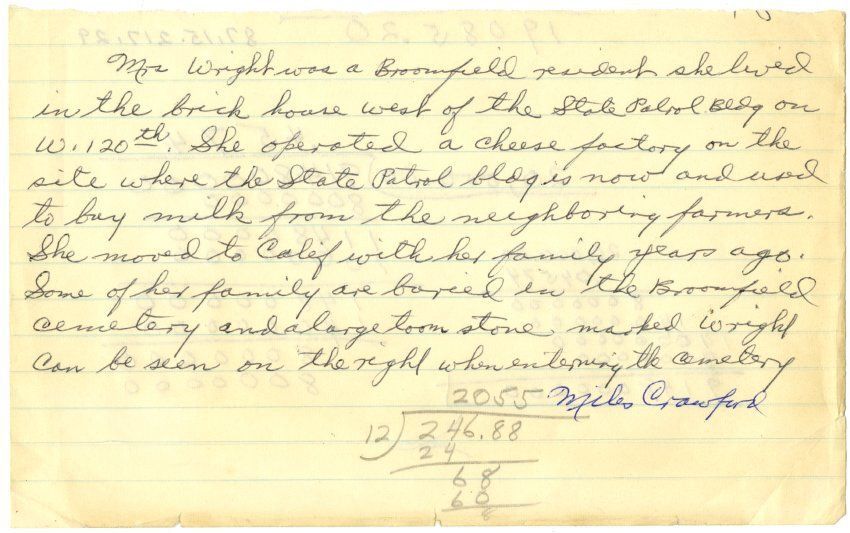 Mrs Wright was a Broomfield resident she lived
in the brick house west of the State Patrol Bldg on
W. 120th. She operated a cheese factory on the
site where the State Patrol bldg is now and used
to buy milk from the neighboring farmers.
She moved to Calif with her family years ago.
Some of her family are buried in the Broomfield
cemetery and a large toom stone marked Wright
can be seen on the right when enterning the cemetery
Miles Crawford
2055
12) 246.88
24
68
60